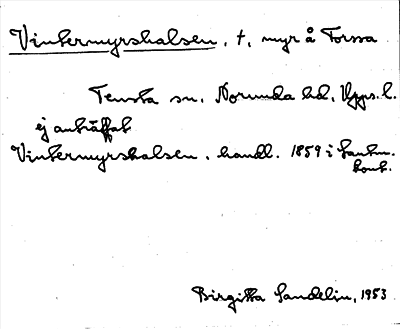 Vintermyrshalsen, t, myr å Forssa
Tensta sn. Norunda hd, Upps. l.
ej anträffat
Vintermyrshalsen, handl. 1859 i Lantm.
kont.
Birgitta Sandelin, 1953